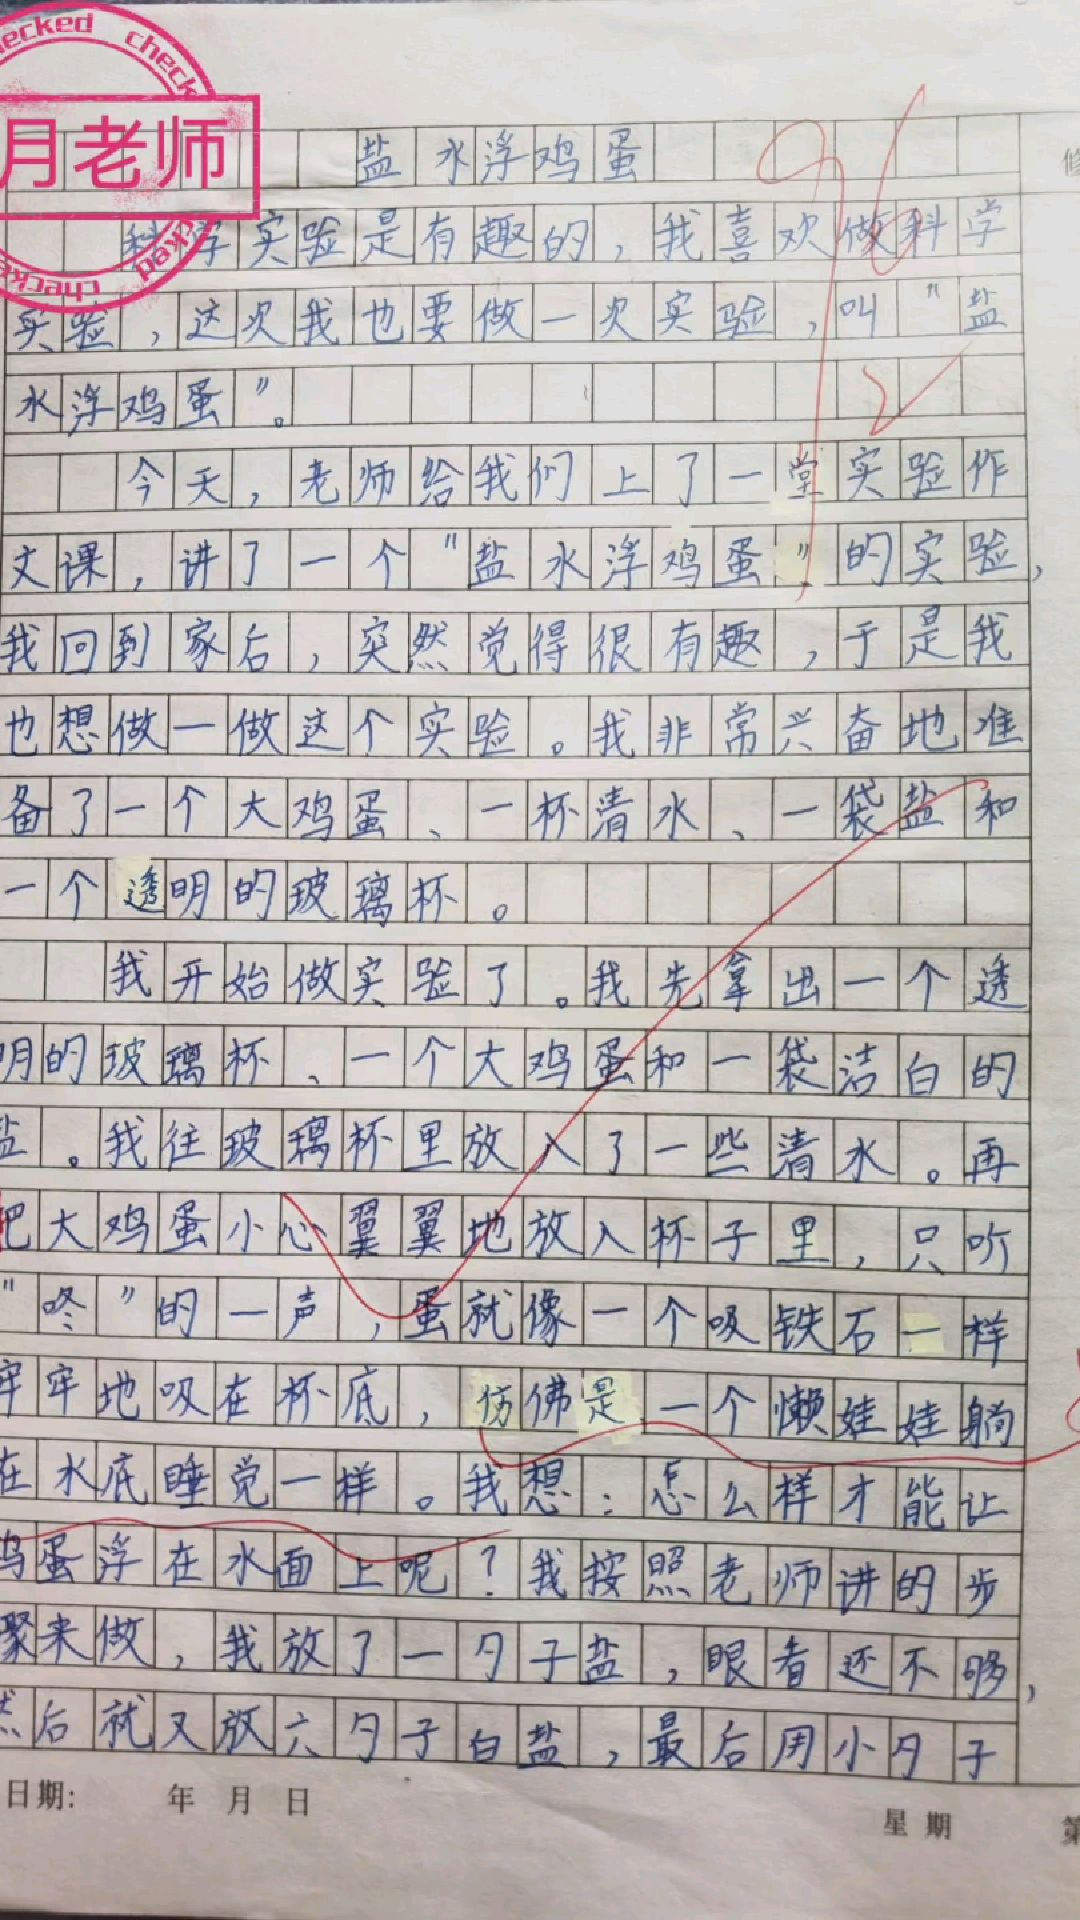 checked check
月老师
checked
盐水浮鸡蛋
科学实验是有趣的，我喜欢做科学
实验，这次我也要做一次实验，叫"盐
水浮鸡蛋"。
今天，老师给我们上了一堂实验作
文课，讲了一个"盐水浮鸡蛋"的实验，
我回到家后，突然觉得很有趣，于是我
也想做一做这个实验。我非常兴奋地准
备了一个大鸡蛋、一杯清水、一袋盐和
一个透明的玻璃杯。
我开始做实验了。我先拿出一个透
明的玻璃杯、一个大鸡蛋和一袋洁白的
盐。我往玻璃杯里放入了一些清水。再
把大鸡蛋小心翼翼地放入杯子里，只听
"咚"的一声，蛋就像一个吸铁石一样
牢牢地吸在杯底，仿佛是一个懒娃娃躺
在水底睡觉一样。我想：怎么样才能让
鸡蛋浮在水面上呢？我按照老师讲的步
骤来做，我放了一勺子盐，眼看还不够，
然后就又放六勺子白盐，最后用小勺子
日期： 年 月 日
星期
第